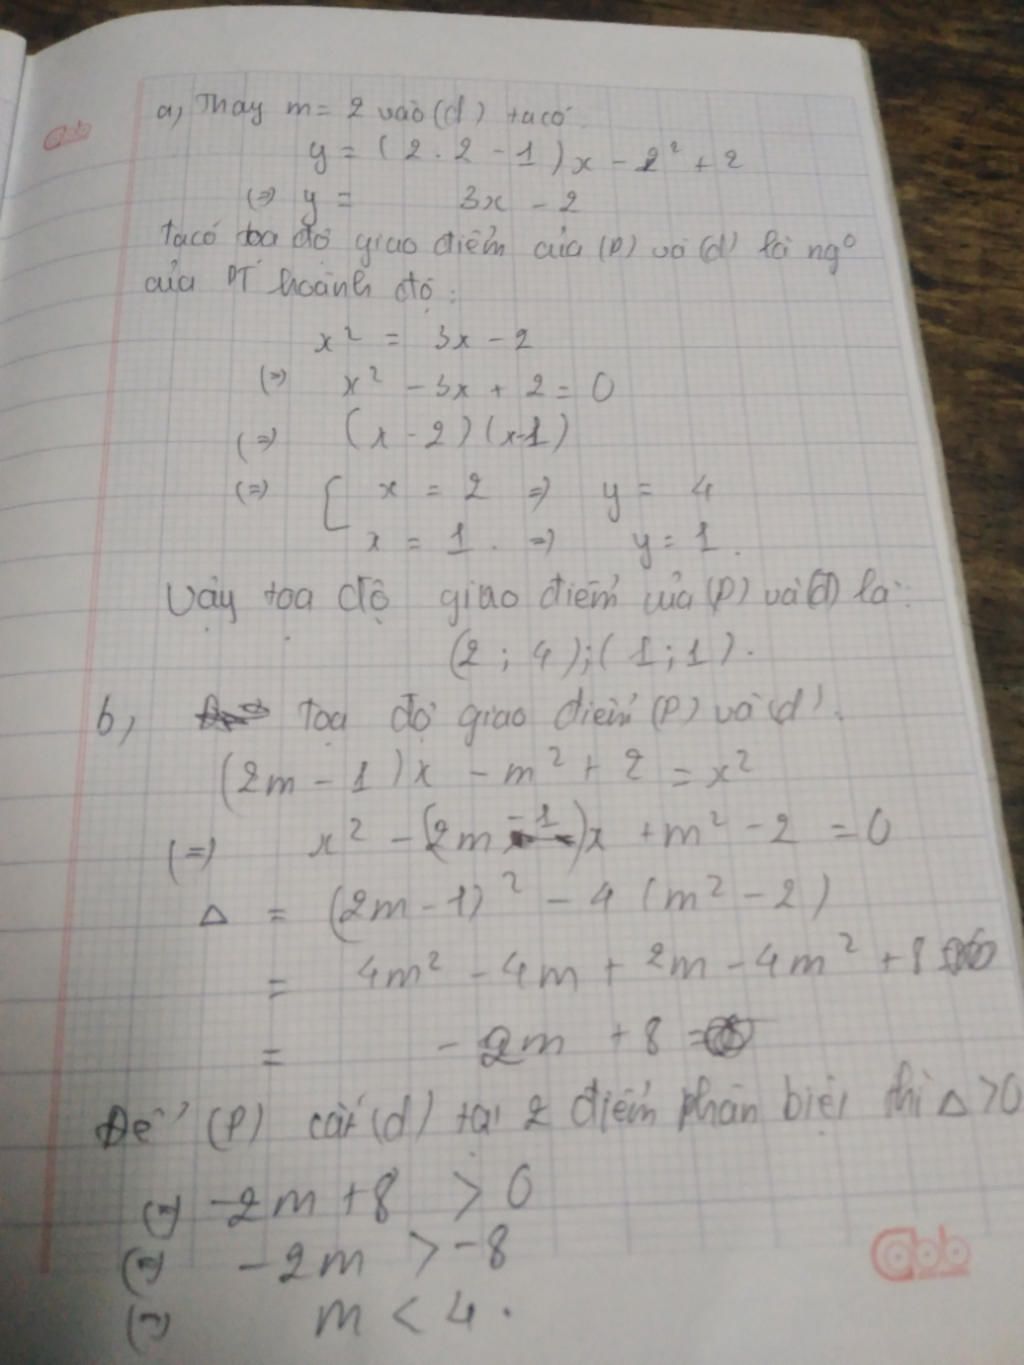 a, Thay m = 2 vào (d) ta có
y = (2.2 - 1)x - 2² + 2
(=) y = 3x - 2
Ta có toạ độ giao điểm của (P) và (d) là ng⁰
của PT hoành độ:
x² = 3x - 2
(=) x² - 3x + 2 = 0
(=) (x - 2)(x-1)
(=) [ x = 2 => y = 4
x = 1. => y = 1.
Vậy toạ độ giao điểm của (P) và (d) là:
(2; 4);(1;1).
b, Toạ độ giao điểm (P) và (d).
(2m - 1)x - m² + 2 = x²
(=) x² - (2m -1)x + m² - 2 = 0
Δ = (2m - 1)² - 4 (m² - 2)
= 4m² - 4m + 2m - 4m² + 8
= - 2m + 8
Để (P) cắt (d) tại 2 điểm phân biệt thì Δ > 0
(=) -2m + 8 > 0
(=) -2m > -8
(=) m < 4.